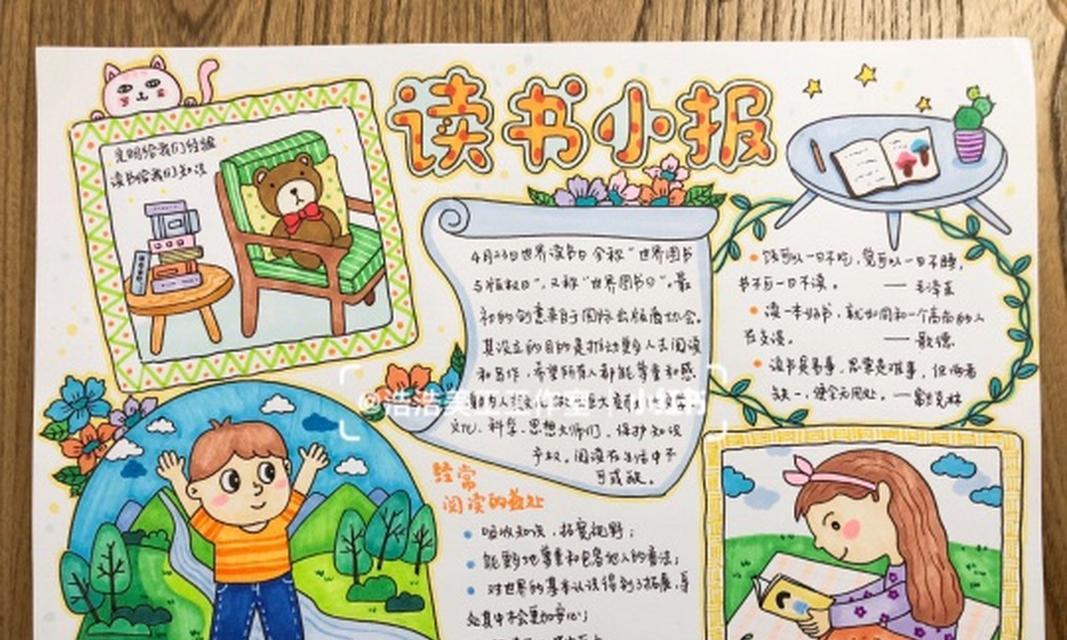 读书小报
文明给我们经验
读书给我们知识
4月23日世界读书日全称"世界图书
与版权日",又称"世界图书日"。最
初的创意来自于国际出版商协会。
其设立的目的是推动更多人去阅读
和写作,希望所有人都能尊重和感
文化、科学、思想大师们,保护知识
产权。阅读在生活中不
可或缺。
饭可以一日不吃,觉可以一日不睡,
书不可一日不读。 ——毛泽东
读一本好书,就如同和一个高尚的人
在交谈。 ——歌德
读书是易事,思索是难事,但两者
缺一,便全无用处。——富兰克林
@浩浩美工工作室 小红书
经常
阅读的益处
吸收知识,拓宽视野;
能更好地尊重和包容他人的看法;
对世界的基本认识得到了拓展,身
处其中才会更加安心;